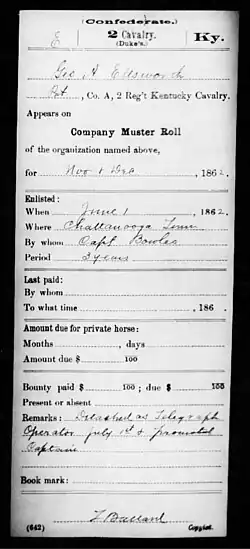 (Confederate.)
E 2 Cavalry. Ky.
(Duke's.)
Geo A Ellsworth
Pvt, Co. A, 2 Reg't Kentucky Cavalry.
Appears on
Company Muster Roll
of the organization named above,
for Nov & Dec, 1862.
Enlisted:
When June 1, 1862.
Where Chattanooga Tenn
By whom Capt Bowles
Period 3 years
Last paid:
By whom
To what time , 186 .
Amount due for private horse:
Months , days
Amount due $ 100
Bounty paid $ 100; due $ 100
Present or absent
Remarks: Detached as Telegraph
Operator July 1st & promoted
Captain
Book mark:
(642) Copyist.